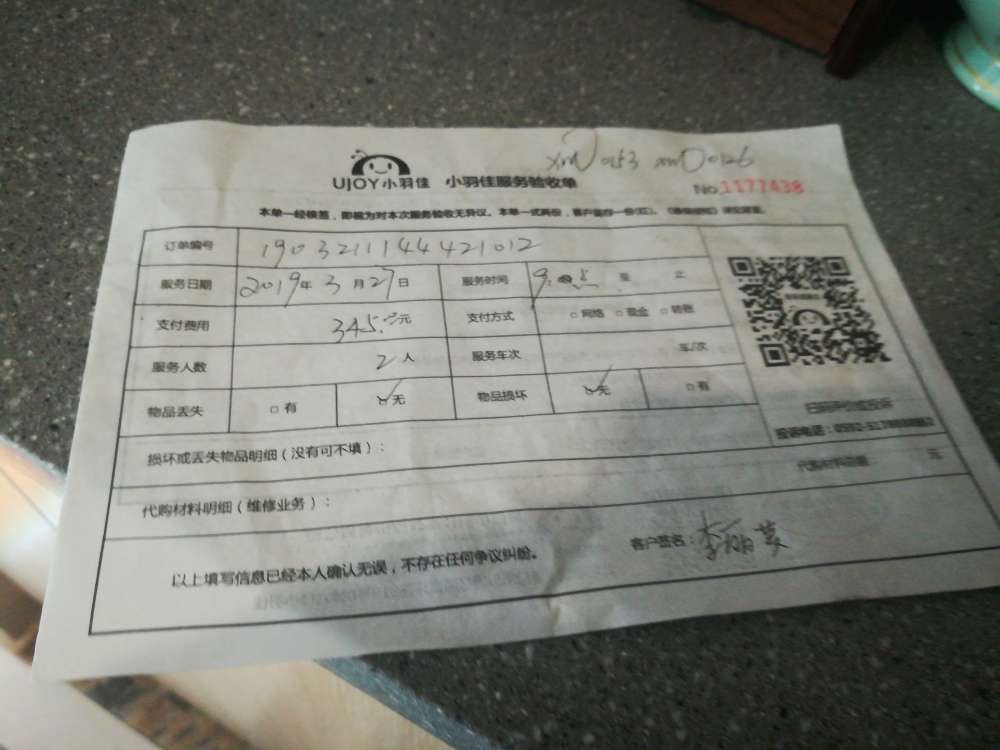 UJOY小羽佳 小羽佳服务验收单
No 1177438
本单一经核签，即视为对本次服务验收无异议。本单一式两份，客户留存一份(红)。
订单编号 1903211144421012
服务日期 2019年3月27日 服务时间 至 止
支付费用 345.00元 支付方式 □网络 □现金 □转账
服务人数 2人 服务车次 车/次
物品丢失 □有 ☑无 物品损坏 ☑无 □有
扫码评价或投诉
投诉电话：
损坏或丢失物品明细（没有可不填）：
代购材料明细（维修业务）： 代购材料总额 元
以上填写信息已经本人确认无误，不存在任何争议纠纷。 客户签名：李丽英